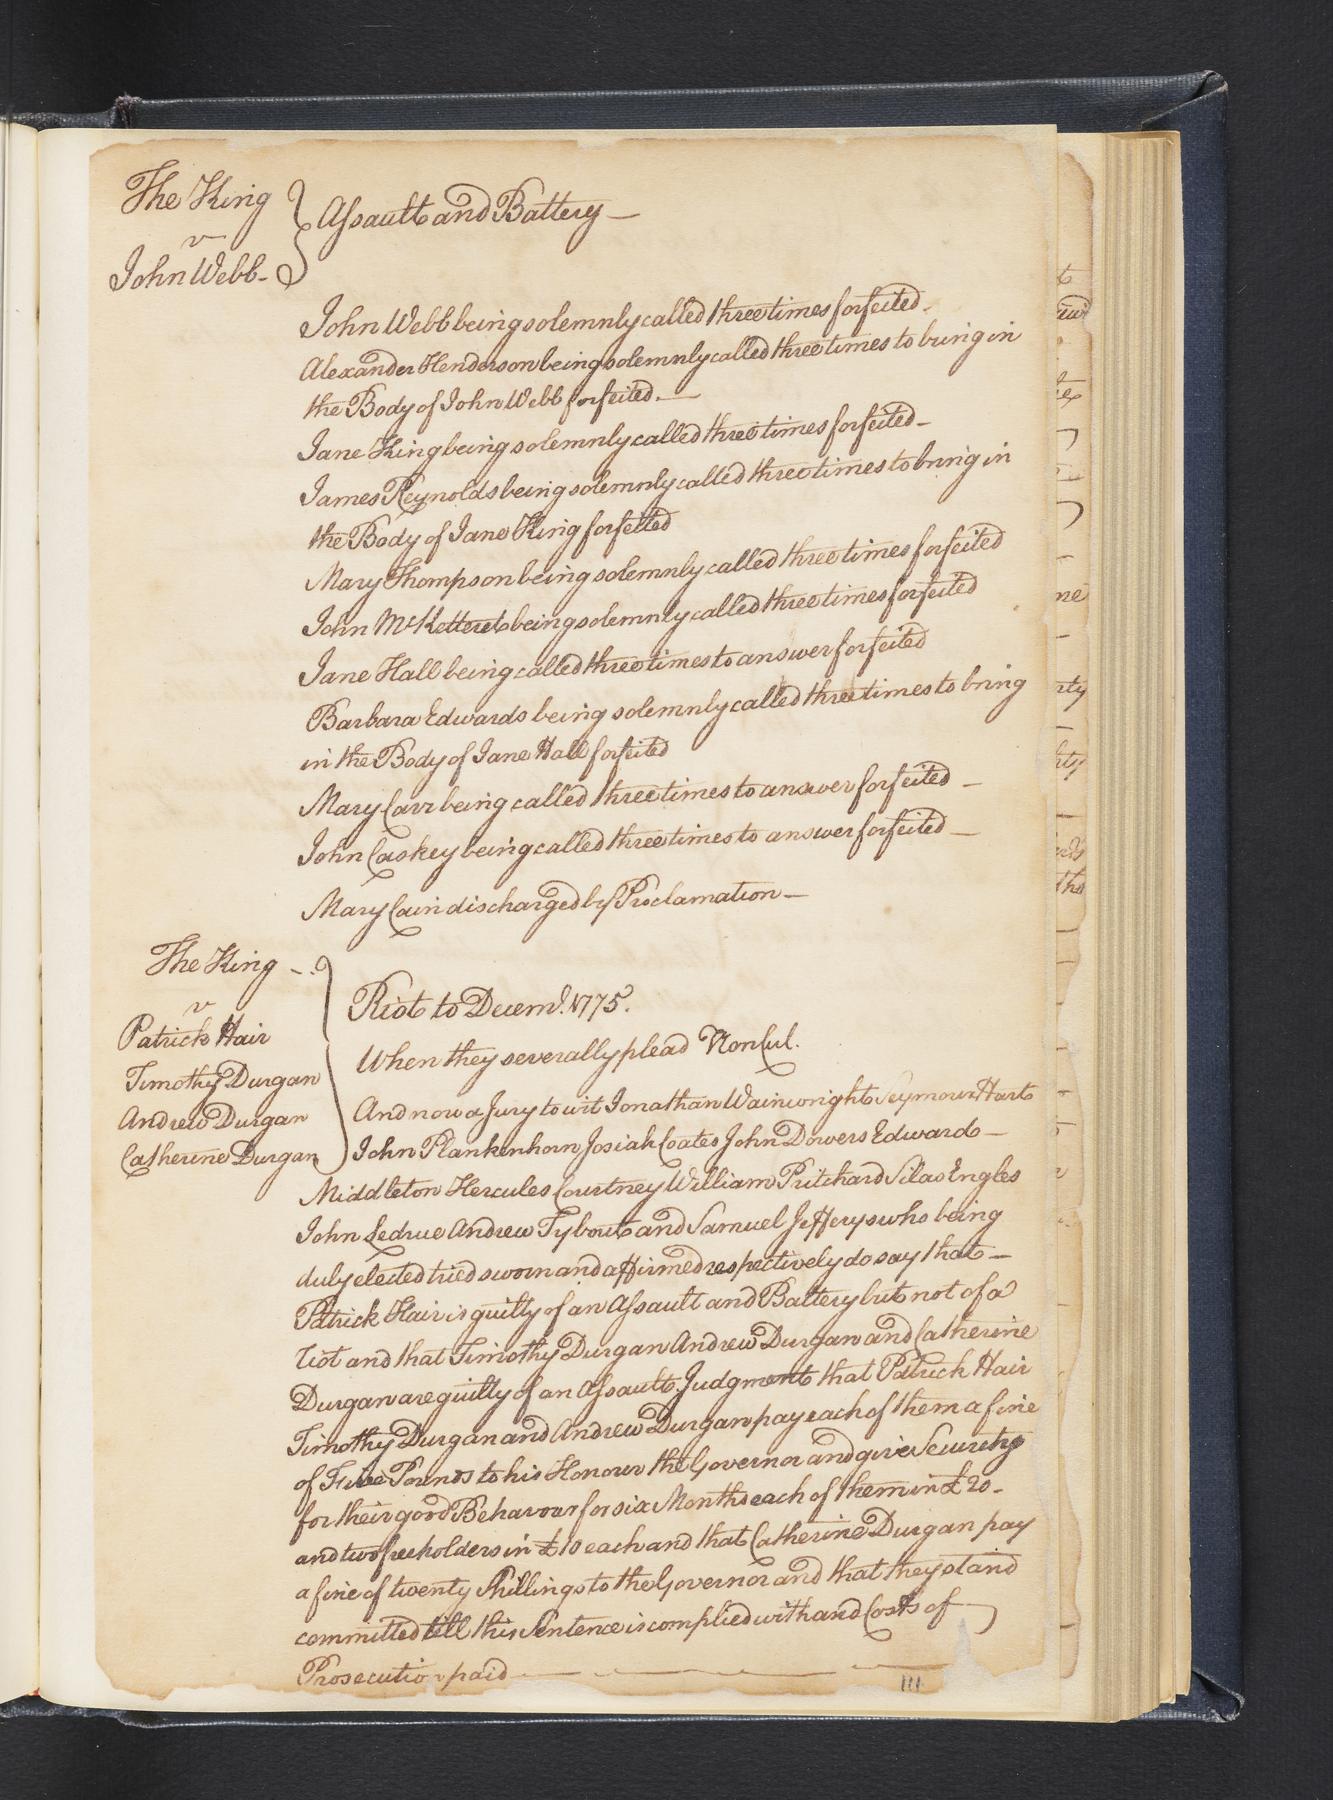 The King
v
John Webb-
Assault and Battery—
John Webb being solemnly called three times forfeited-
Alexander Henderson being solemnly called three times to bring in
the Body of John Webb forfeited.—
Jane King being solemnly called three times forfeited-
James Reynolds being solemnly called three times to bring in
the Body of Jane King forfeited
Mary Thompson being solemnly called three times forfeited
John being solemnly called three times forfeited
Jane Hall being called three times to answer forfeited
Barbara Edwards being solemnly called three times to bring
in the Body of Jane Hall forfeited
Mary Carr being called three times to answer forfeited -
John Caskey being called three times to answer forfeited —
Mary Cain discharged by Proclamation—
The King -
v
Patrick Hair
Timothy Durgan
Andrew Durgan
Catherine Durgan
Riot to Decemr. 1775.
When they severally plead Non Cul.
And now a Jury to wit Jonathan Wainwright Seymour Hart
John Plankenhorn Josiah Coates John Dowers Edward —
Middleton Hercules Courtney William Pritchard Silas Engles
John Ledrue Andrew Tybout and Samuel Jefferys who being
duly elected tried sworn and affirmed respectively do say that —
Patrick Hair is guilty of an Assault and Battery but not of a
riot and that Timothy Durgan Andrew Durgan and Catherine
Durgan are guilty of an Assault Judgment that Patrick Hair
Timothy Durgan and Andrew Durgan pay each of them a fine
of Five Pounds to his Honour the Governor and give Security
for their good Behaviour for six Months each of them in £ 20-
and two freeholders in £ 10 each and that Catherine Durgan pay
a fine of twenty Shillings to the Governor and that they stand
committed till this Sentence is complied with and Costs of
Prosecution paid —
111